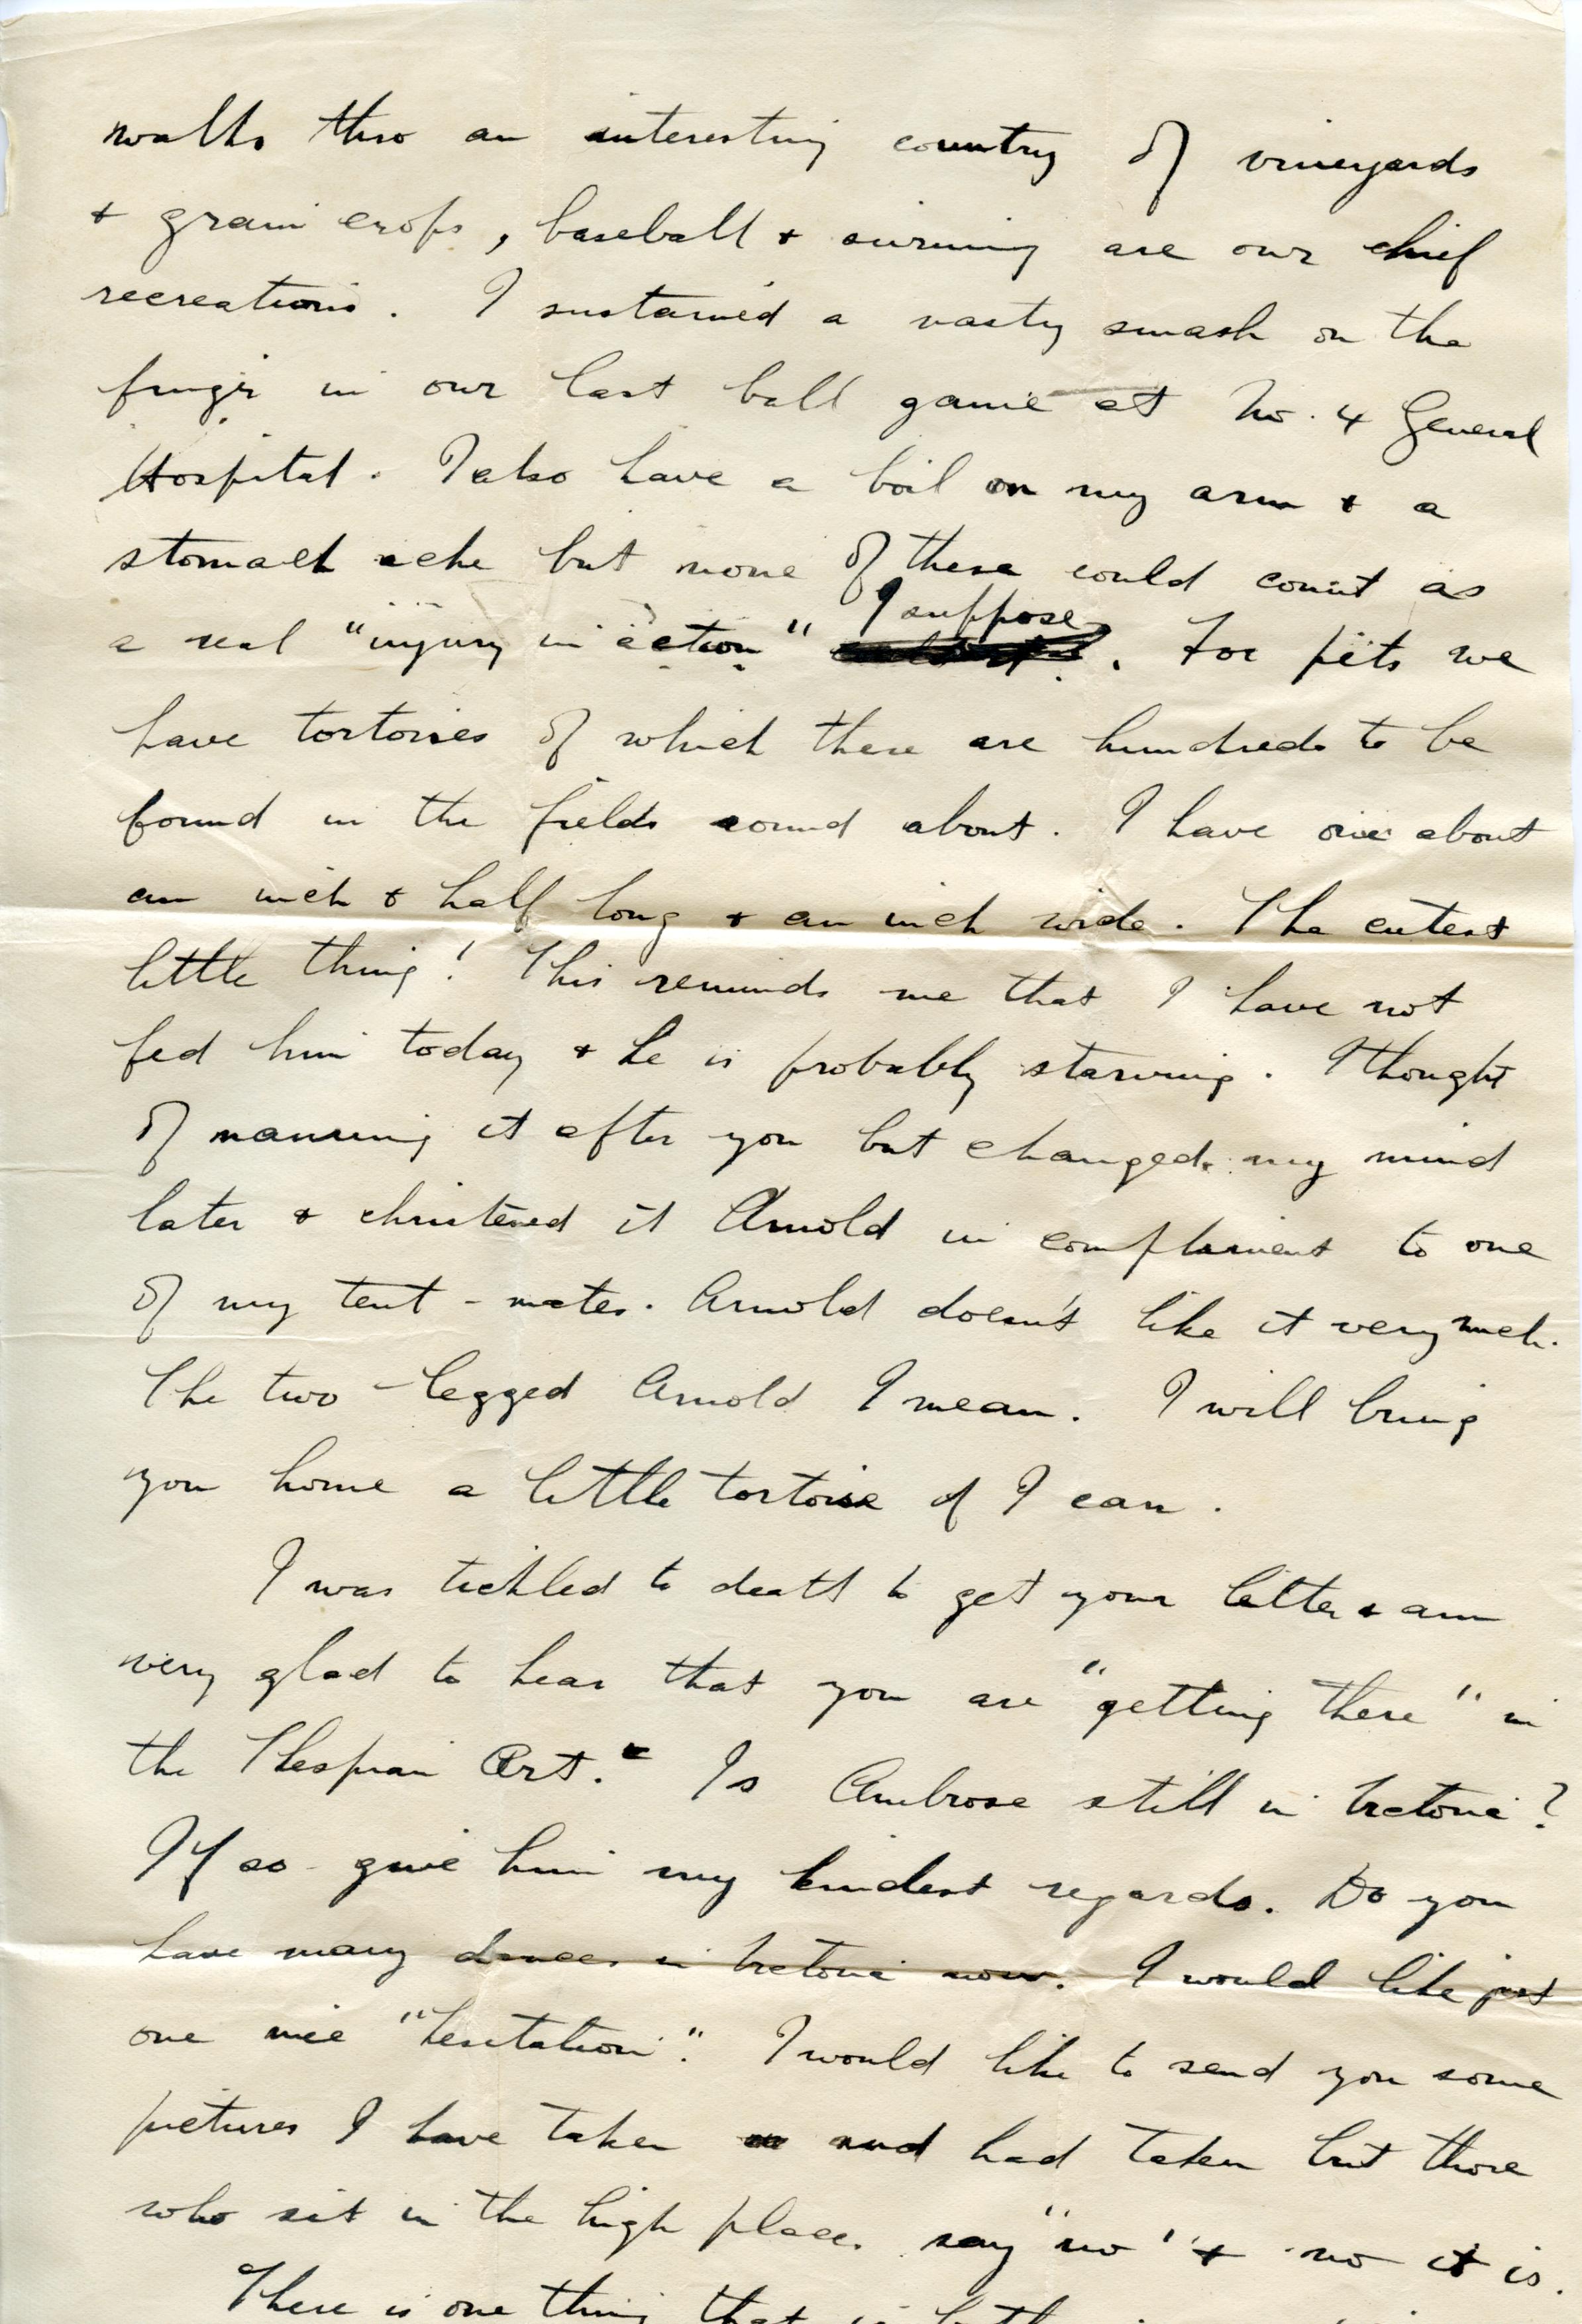 walks thro an interesting country of vineyards
+ grain crops, baseball + swimming are our chief
recreations. I sustained a nasty smash on the
finger in our last ball game at No. 4 General
Hospital. I also have a boil on my arm + a
stomach ache but none of these could count as
I suppose
a real "injury in action" . For pets we
have tortoises of which there are hundreds to be
found in the fields round about. I have one about
an inch + half long + an inch wide. The cutest
little thing! This reminds me that I have not
fed him today + he is probably starving. I thought
of naming it after you but changed my mind
later + christened it Arnold in compliment to one
of my tent-mates. Arnold doesn't like it very much.
The two-legged Arnold I mean. I will bring
you home a little tortoise if I can.
I was tickled to death to get your letter + am
very glad to hear that you are "getting there" in
the Thespian Art. Is Ambrose still in
If so give him my kindest regards. Do you
have many dances in now. I would like just
one nice "hesitation". I would like to send you some
pictures I have taken and had taken but those
who sit in the high places say "no" + no it is.
There is one thing that is